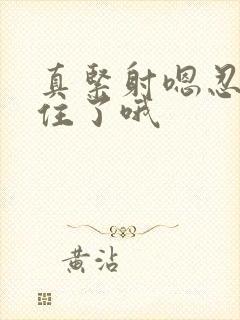 真紧射嗯忍
住了哦
黄沾